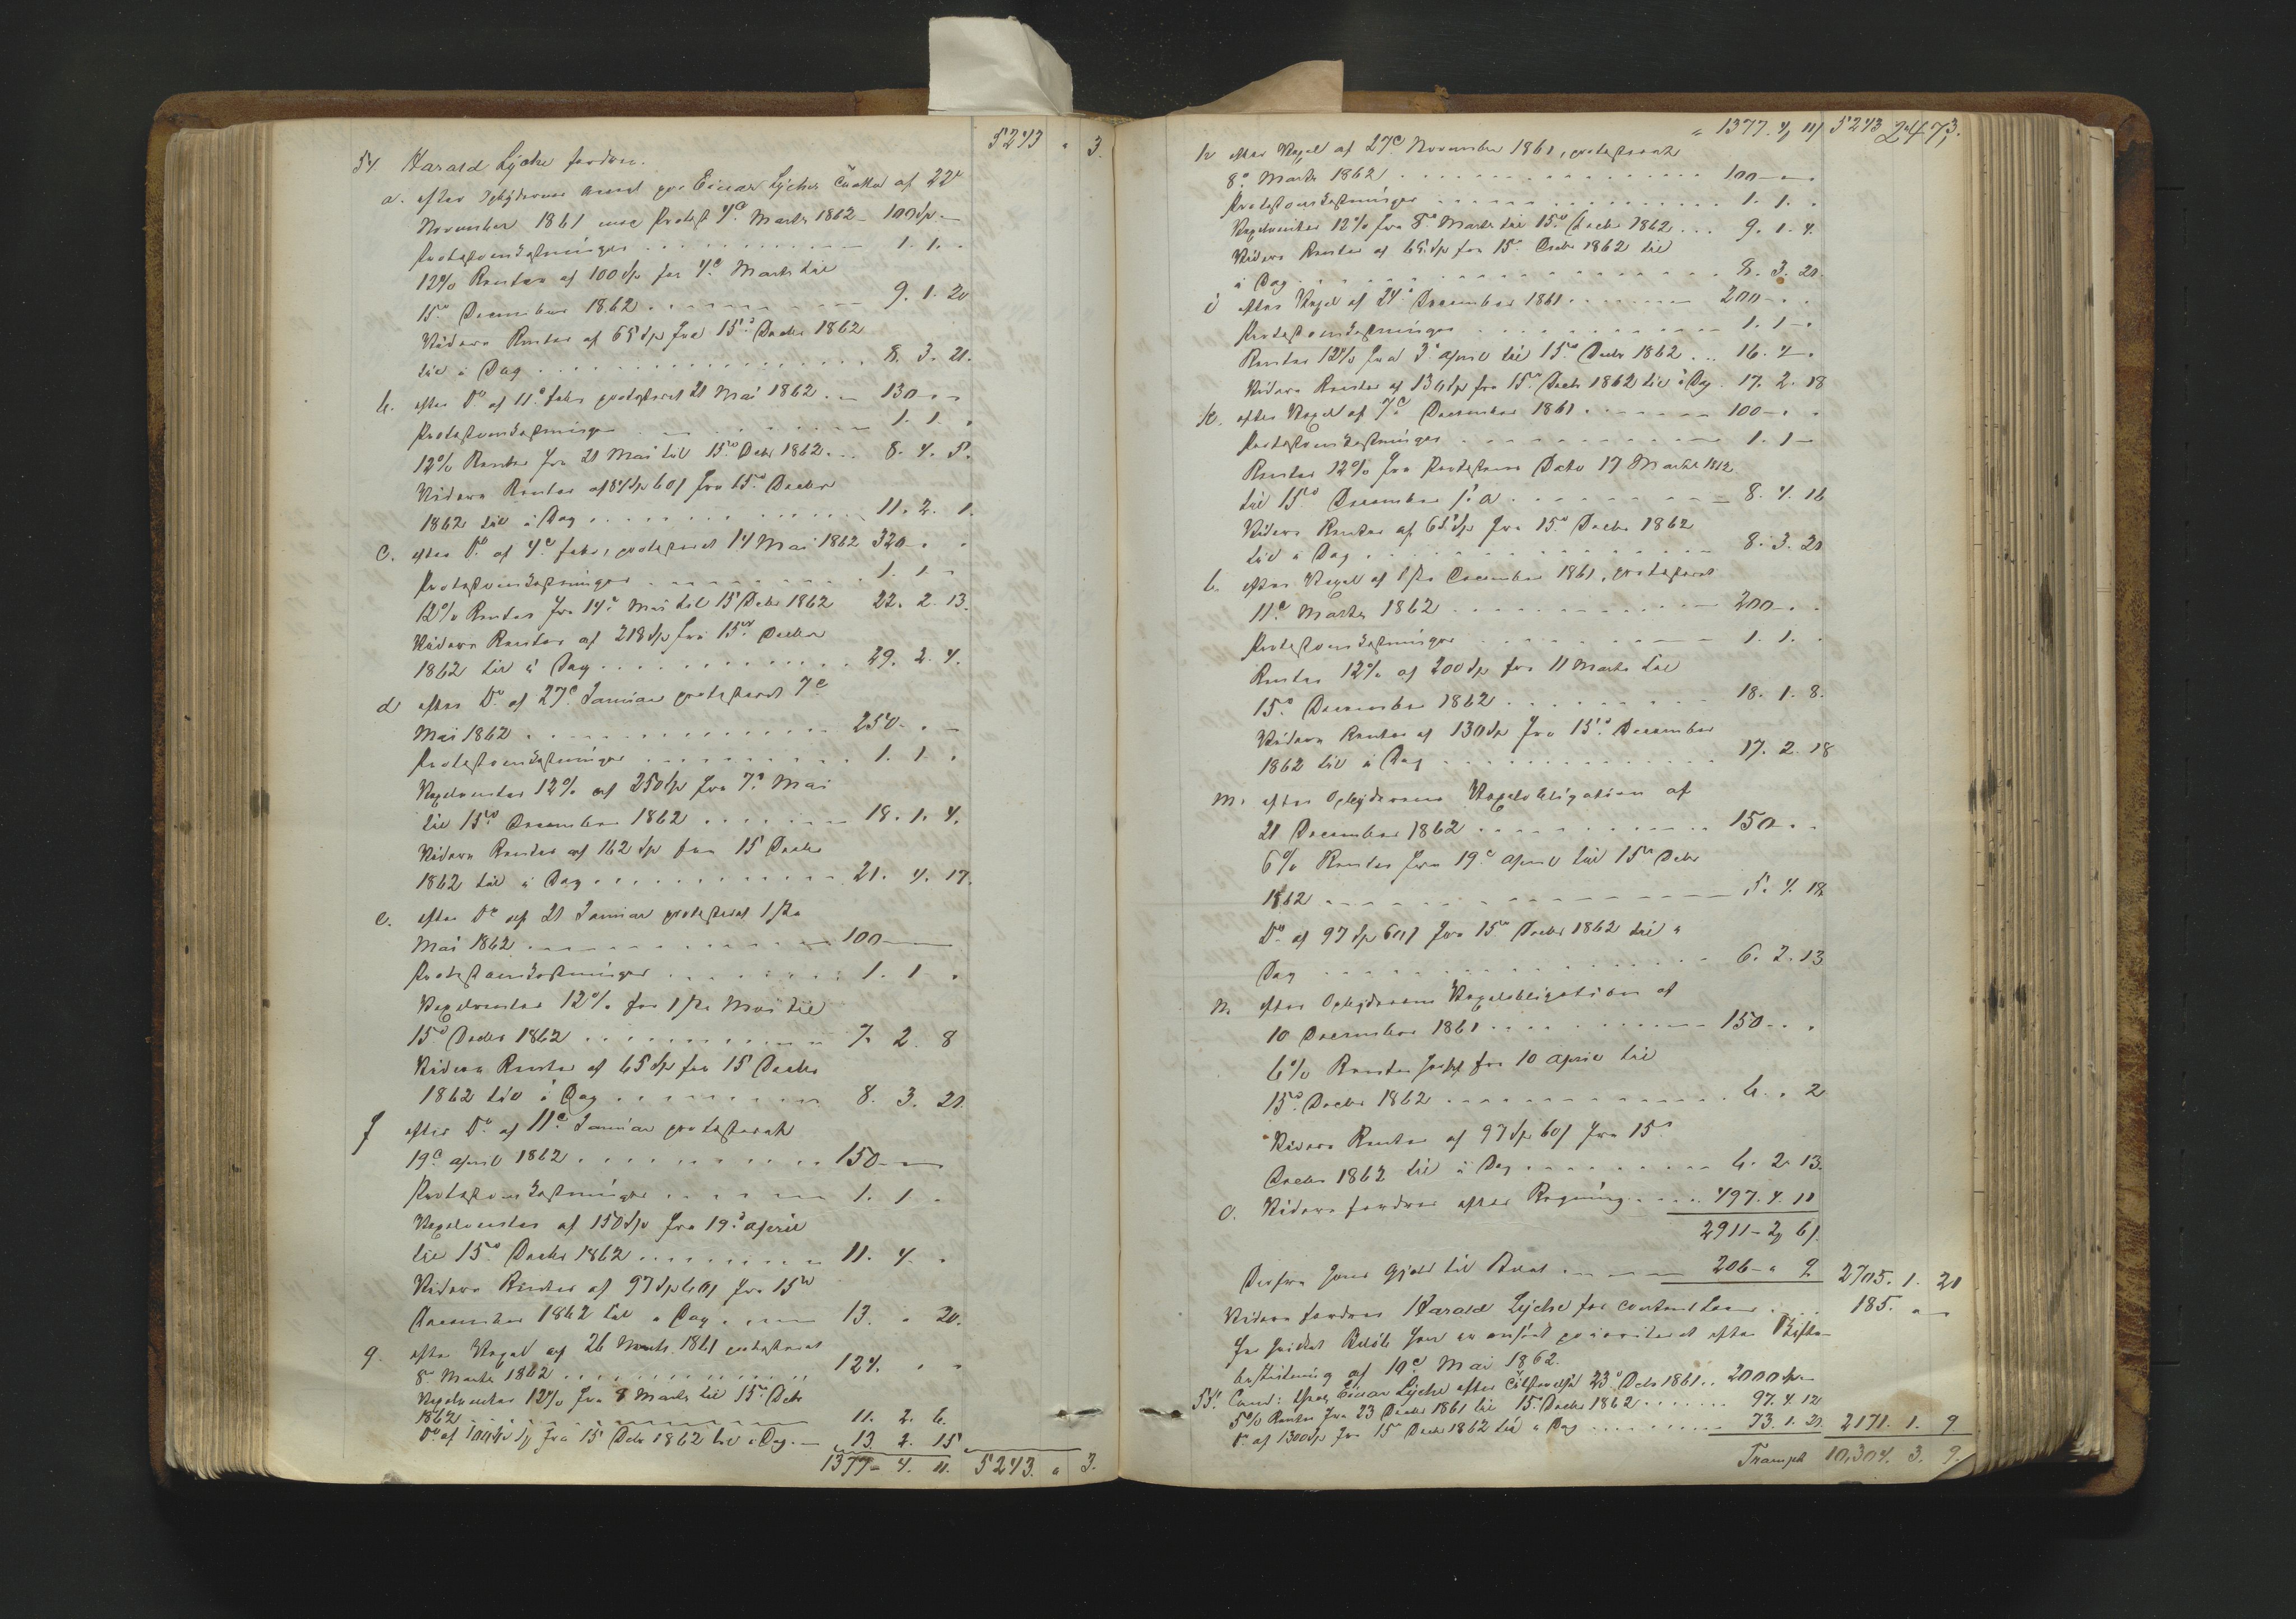 5243 " 3.
54 Harald Lÿche fordrer.
a. efter Opbÿderens Accept paa Einar Lÿches Tratta af 22d
November 1861 med Protest 4de Marts 1862 100 Sp. —
Protestomkostninger . . . 1. 1. "
12% Renter af 100 Sp fra 4de Marts til
15de December 1862 . . . 9. 1. 20
Videre Renter af 65 Sp fra 15de Decbr 1862
til i Dag . . . 8. 3. 21.
b. efter Do af 11te Febr protesteret 21 Mai 1862 . — 130 — "
Protestomkostninger . . . 1. 1. "
12% Renter fra 21 Mai til 15de Decbr 1862 . . . 8. 4. 5.
Videre Renter af 84 Sp 60 s fra 15de Decbr
1862 til i Dag . . . 11. 2. 1.
c. efter Do af 4de Febr, protesteret 14 Mai 1862 320 — " "
Protestomkostninger . . . 1. 1 "
12% Renter fra 14de Mai til 15 Decbr 1862 22. 2. 13.
Videre Renter af 218 Sp fra 15de Decbr
1862 til i Dag . . . 29. 2. 4.
d efter Do af 27de Januar protesteret 7de
Mai 1862 . . . 250 — " —
Protestomkostninger . . . 1. 1. "
Vexelrenter 12% af 250 Sp fra 7de Mai
til 15de December 1862 . . . 18. 1. 4.
Videre Renter af 162 Sp fra 15 Decbr
1862 til i Dag . . . 21. 4. 17.
e. efter Do af 21 Januar protesteret 1ste
Mai 1862 . . . 100 —
Protestomkostninger . . . 1. 1 "
Vexelrenter 12% fra 1ste Mai til
15de Decbr 1862 . . . 7. 2. 8
Videre Renter af 65 Sp fra 15 Decbr
1862 til i Dag . . . 8. 3. 21.
f efter Do af 11te Januar protesteret
19de April 1862 . . . 150 —
Protestomkostninger . . . 1. 1 "
Vexelrenter af 150 Sp fra 19de April
til 15de Decbr 1862 . . . 11. 4. "
Videre Renter af 97 Sp 60 s fra 15de
December 1862 til i Dag . . . 13. " 20.
g. efter Vexel af 26 1861 protesteret
8de Marts 1862 . . . 124. " "
Vexelrenter 12% fra 8 Marts til 15de Decbr
1862 . . . 11. 2. 6.
Do af fra 15 Decbr 1862 til i Dag . — 13. 2. 15
1377 — 4. 11. 5243. " 3.
" 1377. 4, 11 5243 " 3.
247
h efter Vexel af 27de November 1861, protesteret
8de Marts 1862 . . . 100 — "
Protestomkostninger . . . 1. 1. "
Vexelrenter 12% fra 8de Marts til 15de Decbr 1862 . . . 9. 1. 4.
Videre Renter af 65 Sp fra 15de Decbr 1862 til
i Dag . . . 8. 3. 21.
i efter Vexel af 24de December 1861 . . . 200 — " "
Protestomkostninger . . . 1. 1 — "
Renter 12% fra 3de April til 15de Decbr 1862 . . 16. 4. "
Videre Renter af 130 Sp fra 15de Decbr 1862 til i Dag . 17. 2. 18
k. efter Vexel af 7de December 1861 . . . 100 — " "
Protestomkostninger . . . 1. 1 —
Renter 12% fra Protestens Dato 17 Marts 1862
til 15de December s. A . . . 8. 4. 16
Videre Renter af 65 Sp fra 15de Decbr 1862
til i Dag . . . 8. 3. 21
l. efter Vexel af 1ste December 1861, protesteret
11te Marts 1862 . . . 200 — " "
Protestomkostninger . . . 1. 1. "
Renter 12% af 200 Sp fra 11 Marts til
15de December 1862 . . . 18. 1. 8.
Videre Renter af 130 Sp fra 15de December
1862 til i Dag . . . 17. 2. 18
m. efter Opbÿderens Vexelobligation af
21 December 1862 . . . 150 — " "
6% Renter fra 19de April til 15de Decbr
1862 . . . 5. 4. 18.
Do af 97 Sp 60 s fra 15de Decbr 1862 til i
Dag . . . 6. 2. 13
n. efter Opbÿderens Vexelobligation af
10 December 1861 . . . 150 — " "
6% Renter fra 10 April til
15de Decbr 1862 . . . 6. " 2
Videre Renter af 97 Sp 60 s fra 15de
Decbr 1862 til i Dag . . . 6. 2. 13.
o. Videre fordres efter Regning . . . 497. 4. 11
2911 — 2, 6 s.
Derfra hans Gjæld til Boet . . . 206 — " 9 2705. 1. 21
Videre fordrer Harald Lÿche for contant Laan . . . 185. " —
for hvilket Beløb han er anseet prioriteret efter Skifte-
beslutning af 10de Mai 1862.
55. Cand: theol Einar Lÿche efter Tilstaaelse 23de Decbr 1861 . . 2000 Sp —
5% Renter fra 23 Decbr 1861 til 15de Decbr 1862 . . . 97. 4. 12
Do af 1300 Sp fra 15de Decbr 1862 til i Dag . . . 73. 1. 21. 2171. 1. 9
Transport 10,304. 3. 9.